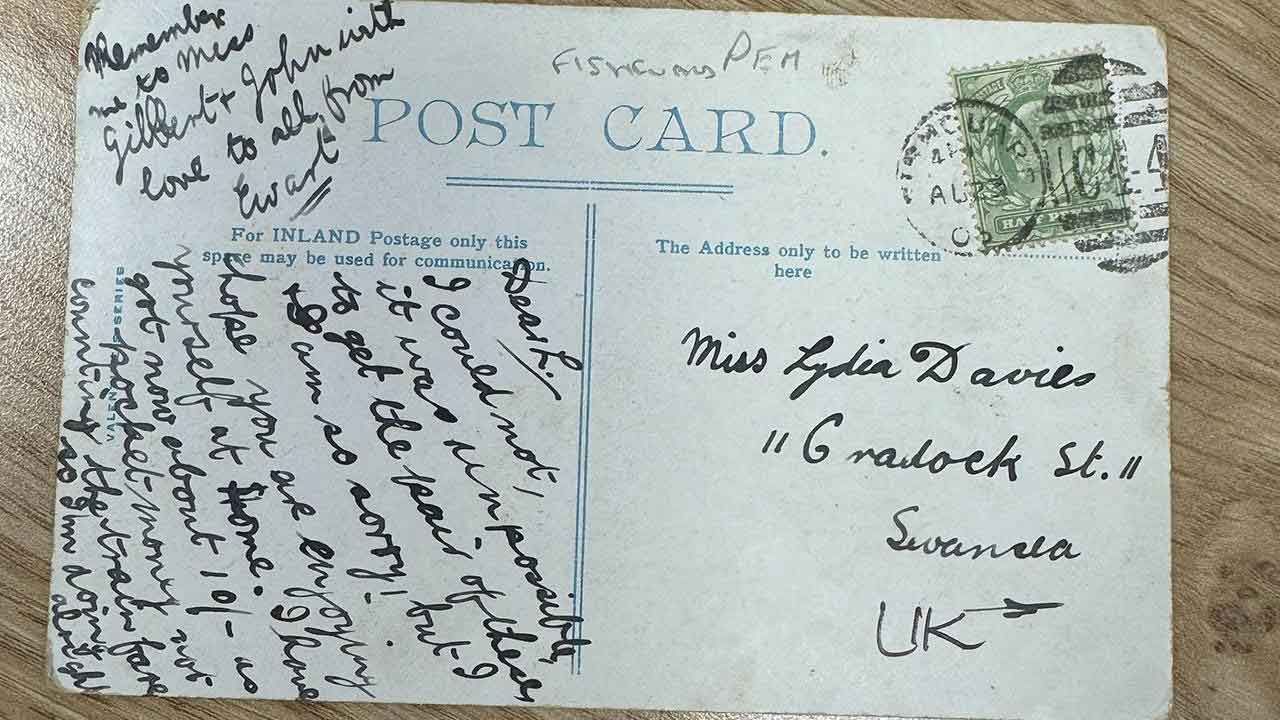 Remember
me to Miss
Gilbert & John with
love to all from
Ewart
PEM
POST CARD.
For INLAND Postage only this
space may be used for communication.
The Address only to be written
here
VALENTINES SERIES
Dear L.
I could not,
it was impossible,
to get the pair of these
& I am so sorry! but I
hope you are enjoying
yourself at Home. I have
got now about 10/- as
pocket-money not
counting the train fare
so I'm doing
alright
Miss Lydia Davies
"Cradock St."
Swansea
UK
AU 23
C14
HALF